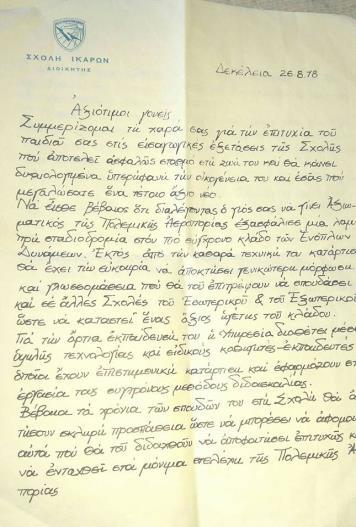 ΣΧΟΛΗ ΙΚΑΡΩΝ
ΔΙΟΙΚΗΤΗΣ
Δεκέλεια 26.8.78
Ἀξιότιμοι γονεῖς
Συμμερίζομαι τή χαρά σας γιά τήν ἐπιτυχία τοῦ
παιδιοῦ σας στίς εἰσαγωγικές ἐξετάσεις τῆς Σχολῆς
πού ἀποτελεῖ ἀσφαλῶς σταθμό στή ζωή του καί θά κάνει
δικαιολογημένα ὑπερήφανη τήν οἰκογένεια του καί ἐσᾶς πού
μεγαλώσατε ἕνα τέτοιο ἄξιο νέο.
Νά εἶσθε βέβαιοι ὅτι διαλέγοντας ὁ γιός σας νά γίνει Ἀξιω
ματικός τῆς Πολεμικῆς Ἀεροπορίας ἐξασφάλισε μία λαμ
πρή σταδιοδρομία στόν πιό σύγχρονο κλάδο τῶν Ἐνόπλων
Δυνάμεων. Ἐκτός ἀπό τήν καθαρά τεχνική του κατάρτιση
θά ἔχει τήν εὐκαιρία νά ἀποκτήσει γενικώτερη μόρφωση
καί γλωσσομάθεια πού θά τοῦ ἐπιτρέψουν νά σπουδάσει
καί σέ ἄλλες Σχολές τοῦ Ἐσωτερικοῦ & τοῦ Ἐξωτερικοῦ
ὥστε νά καταστεῖ ἕνας ἄξιος ἡγέτης τοῦ κλάδου.
Γιά τήν ἄρτια ἐκπαίδευσή του ἡ Ὑπηρεσία διαθέτει μέσα
ὑψηλῆς τεχνολογίας καί εἰδικούς καθηγητές-ἐκπαιδευτές
ὁποῖοι ἔχουν ἐπιστημονική κατάρτιση καί ἐφαρμόζουν στήν
ἐργασία τους συγχρόνους μεθόδους διδασκαλίας.
Βέβαια τά χρόνια τῶν σπουδῶν του στή Σχολή θά ἀ
τήσουν σκληρή προσπάθεια ὥστε νά μπορέσει νά ἀφομοι
αὐτά πού θά τοῦ διδαχθοῦν νά ἀποφοιτήσει ἐπιτυχῶς κ
νά ἐνταχθεῖ στά μόνιμα στελέχη τῆς Πολεμικῆς Ἀ
πορίας